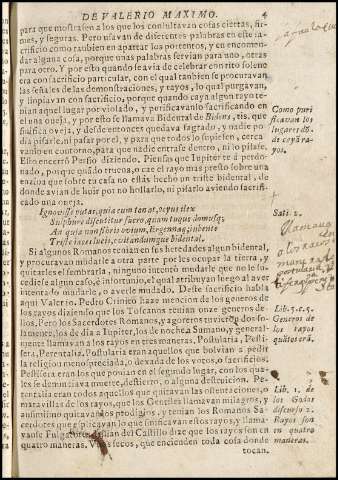 DE VALERIO MAXIMO. 4
para que mostrassen a los que los consultavan cosas ciertas, fir-
mes, y seguras. Pero usavan de diferentes palabras en este sa-
crificio como tambien en apartar los portentos, y en encomen-
dar alguna cosa, porque unas palabras servian para uno, otras
para otro. Y por esto quando se avia de celebrar con rito solene
era con sacrificio particular, con el qual tambien se procuravan
las señales de las demonstraciones, y rayos, lo qual purgavan,
y limpiavan con sacrificio, porque quando caya algun rayo te-
nian aquel lugar por violado, y purificavanlo sacrificando en
el una oveja, y por esto se llamava Bidental de Bidens, tis, que
significa oveja, y desde entonces quedava sagrado, y nadie po
dia pisarle, ni passar por el, y para que todos lo supiessen, cerca
vanle en contorno, para que nadie entrasse dentro, ni lo pisasse.
Esto encerró Persio diziendo. Piensas que Iupiter te á perdo-
nado, porque quãdo truena, o cae el rayo mas presto sobre una
enzina que sobre tu casa no estás hecho un triste bidental, de
donde avian de huir por no hollarlo, ni pisarlo aviendo sacrifi
cado una oveja.
Ignovisse putas, quia cum tonat, ocyus ilex
Sulphure discutitur sacro, quam tuque domusque
An quia non fibris ovium, Ergennaque iubente
Triste iaces lucis, evitandumque bidental.
Si algunos Romanos tenian en sus heredades algun bidental,
y procuravan mudarle a otra parte por les ocupar la tierra, y
quitarles el sembrarla, ninguno intentó mudarle que no le su-
cediesse algun caso, e infortunio, el qual atribuyan luego al aver
intentado mudarlo, o averle mudado. Deste sacrificio habla
aqui Valerio. Pedro Crinito haze mencion de los generos de
los rayos diziendo que los Toscanos tenian onze generos de-
llos, Pero los Sacerdotes Romanos, y agoreros
lamente, los de dia a Iupiter, los de noche a Sumano, y general-
mente llamavan a los rayos en tres maneras. Postularia, Pesti-
fera, Perentalia. Postularia eran aquellos que bolvian a pedir
la religion menospreciada, o dexada de los votos, o sacrificios.
Pestifera eran los que ponian en el segundo lugar, con los qua-
les se denunciava muerte, destierro, o alguna destruicion. Pe-
rentalia eran todos aquellos que quitavan las ostentaciones, o
maravillas de los rayos, que los Gentiles llamavan milagros, y
assimismo quitavan los prodigios, y tenian los Romanos Sa-
cerdotes que expiavan lo que significavan estos rayos, y llama-
vanse Fulgatores. Iulian del Castillo dize que los rayos son en
quatro maneras. Unos secos, que encienden toda cosa donde
tocan.
Como puri
ficavan los
lugares dõ-
de caya ra-
yos.
Sati. 2.
Lib. 5. c. 1.
Generos de
los rayos
quátos erã.
Lib. 1. de
los Godos
discurso 2.
Rayos son
en quatro
maneras.